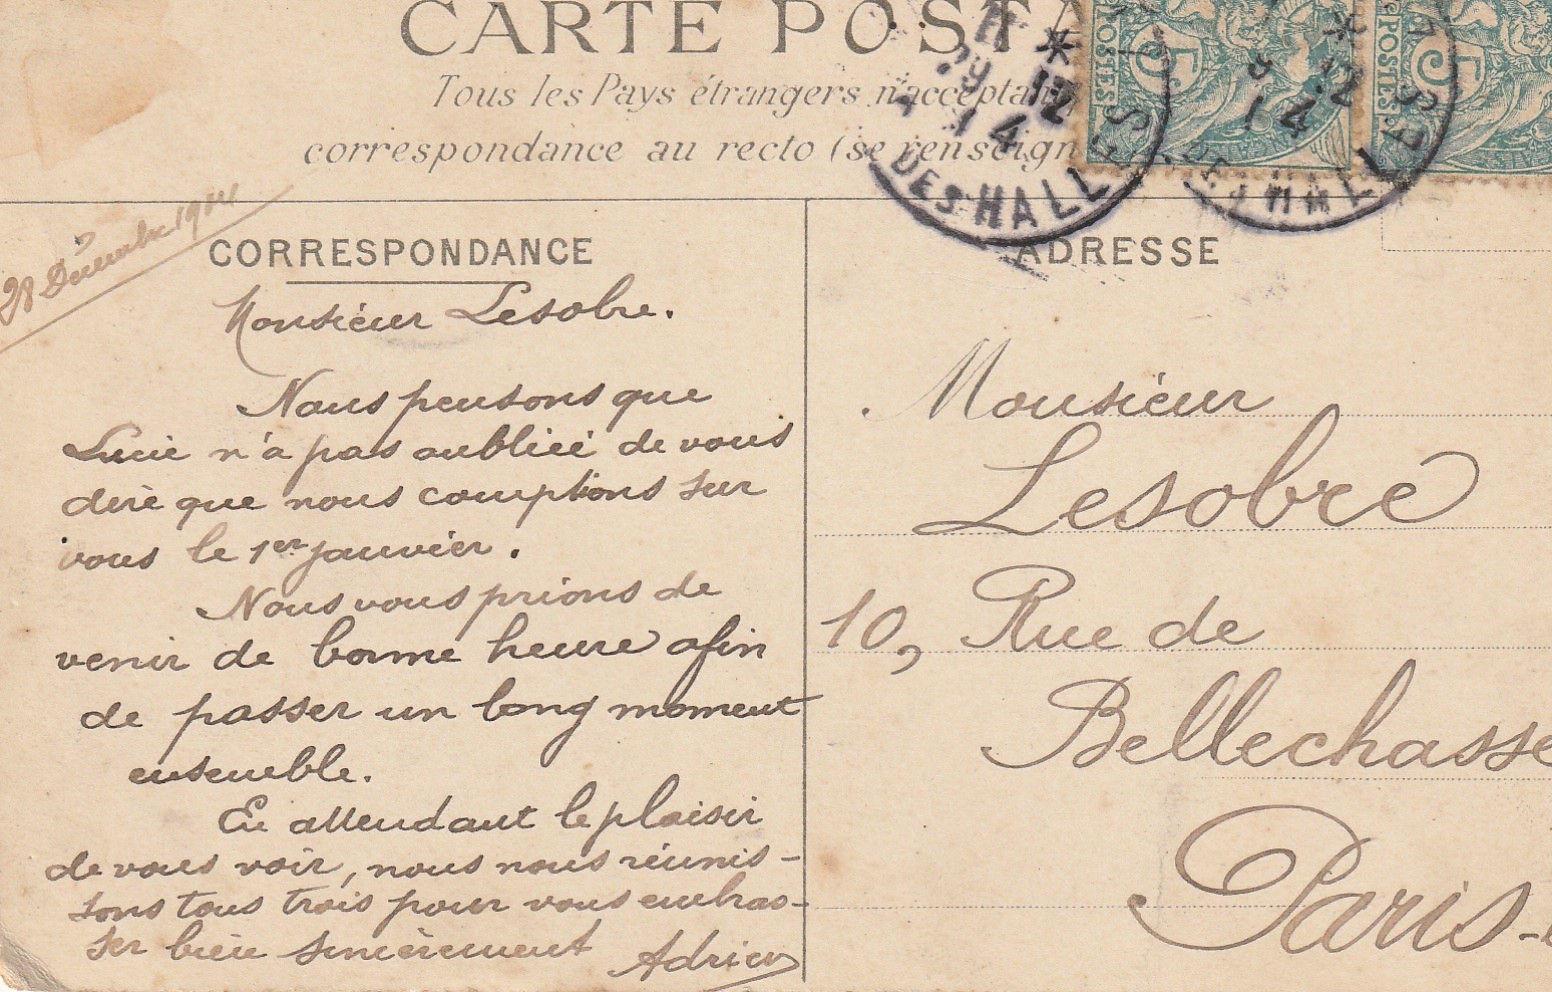 CARTE POSTA
Tous les Pays étrangers n'acceptant
correspondance au recto (se renseign
POSTES
5
POSTES
5
29 12
14
DES HALLES
12
14
DES HALLES
28 Décembre 1914
CORRESPONDANCE
Monsieur Lesobre.
Nous pensons que
Lucie n'a pas oubliée de vous
dire que nous comptions sur
vous le 1er janvier.
Nous vous prions de
venir de bonne heure afin
de passer un long moment
ensemble.
En attendant le plaisir
de vous voir, nous nous réunis-
sons tous trois pour vous embras-
ser bien sincèrement
Adrien
ADRESSE
Monsieur
Lesobre
10, Rue de
Bellechasse
Paris-